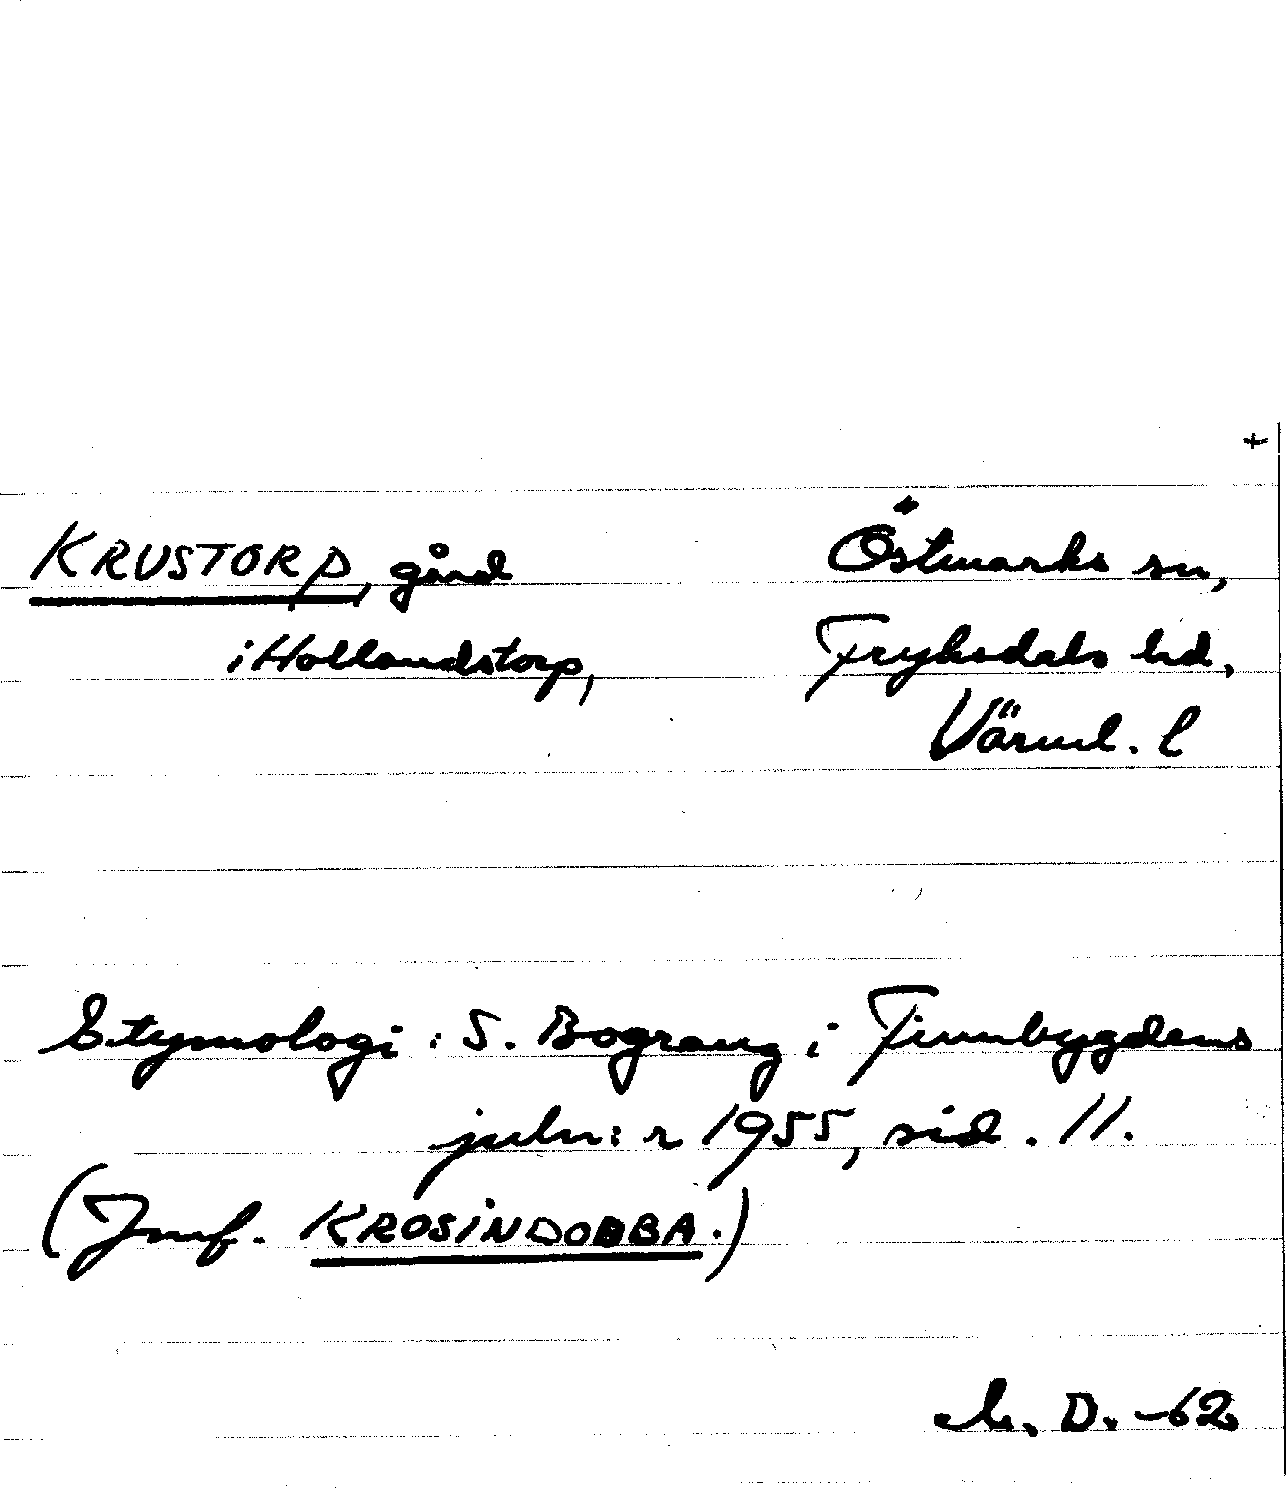 +
KRUSTORP, gård
i Hollandstorp,
Östmarks sn,
Fryksdals hd,
Värml. l
Etymologi: S. Bograng i Finnbygdens
juln:r 1955, sid. 11.
(Jmf. KROSINDOBBA.)
D. -62